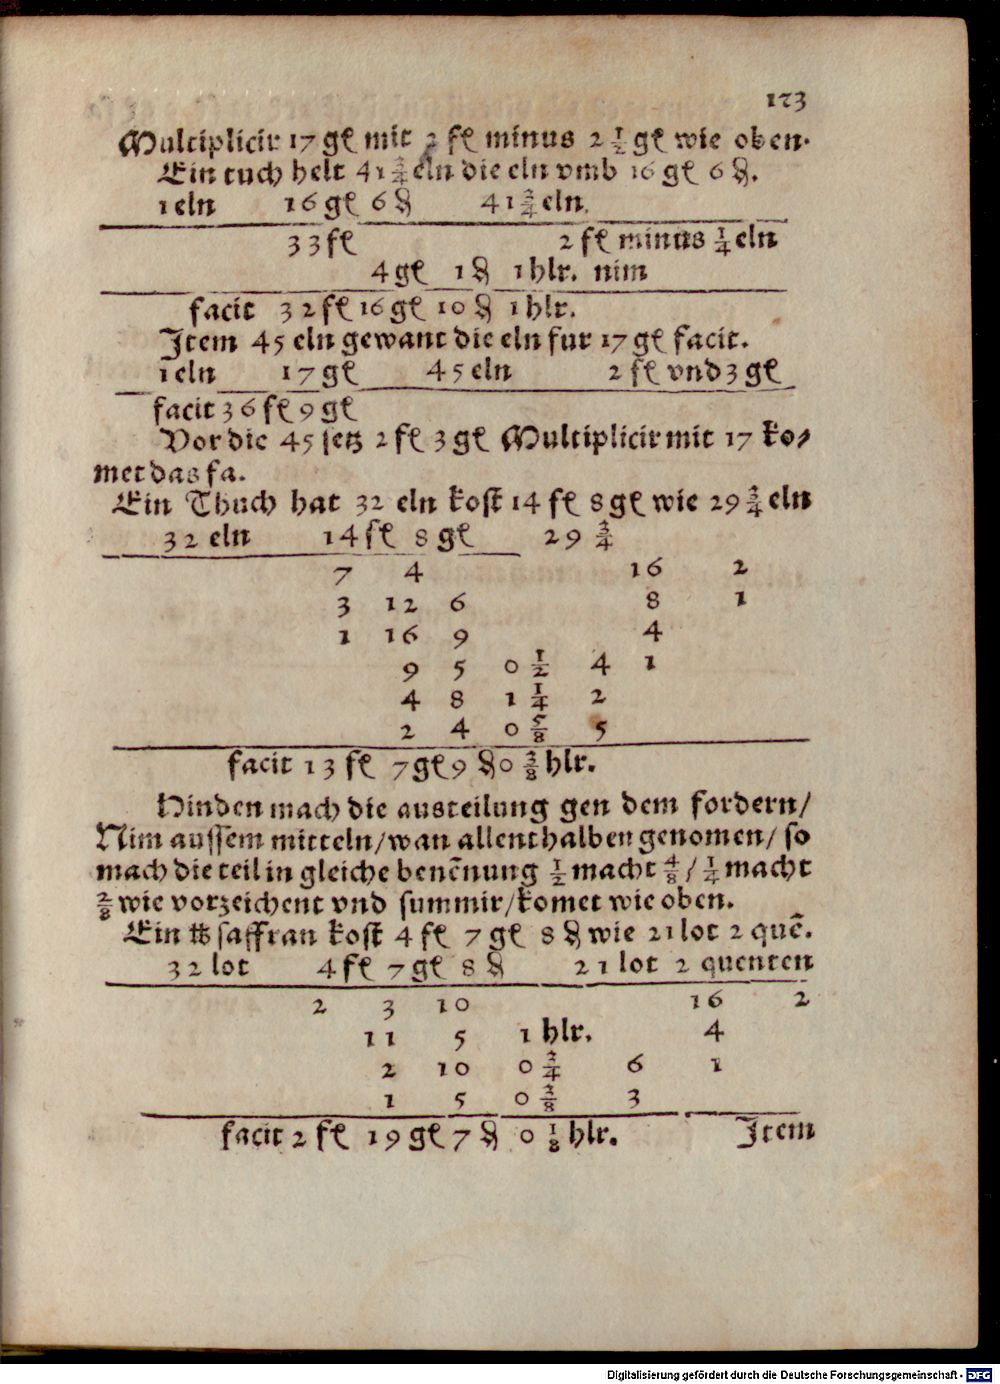 123
Multiplicir 17 gl mit 2 fl minus 2 1/2 gl wie oben.
Ein tuch helt 41 3/4 eln die eln vmb 16 gl 6 ₰.
1 eln 16 gl 6 ₰ 41 3/4 eln.
33 fl 2 fl minus 1/4 eln
4 gl 1 ₰ 1 hlr. nim
facit 32 fl 16 gl 10 ₰ 1 hlr.
Item 45 eln gewant die eln fur 17 gl facit.
1 eln 17 gl 45 eln 2 fl vnd 3 gl
facit 36 fl 9 gl
Vor die 45 setz 2 fl 3 gl Multiplicir mit 17 ko⸗
met das fa.
Ein Thuch hat 32 eln kost 14 fl 8 gl wie 29 3/4 eln
32 eln 14 fl 8 gl 29 3/4
7 4 16 2
3 12 6 8 1
1 16 9 4
9 5 0 1/2 4 1
4 8 1 1/4 2
2 4 0 5/8 5
facit 13 fl 7 gl 9 ₰ 0 3/8 hlr.
Hinden mach die austeilung gen dem fordern/
Nim aussem mitteln/wan allenthalben genomen/ so
mach die teil in gleiche benẽnung 1/2 macht 4/8 / 1/4 macht
2/8 wie vorzeichent vnd summir/komet wie oben.
Ein ℔ saffran kost 4 fl 7 gl 8 ₰ wie 21 lot 2 quẽ.
32 lot 4 fl 7 gl 8 ₰ 21 lot 2 quenten
2 3 10 16 2
11 5 1 hlr. 4
2 10 0 3/4 6 1
1 5 0 3/8 3
facit 2 fl 19 gl 7 ₰ 0 1/8 hlr. Item
Digitalisierung gefördert durch die Deutsche Forschungsgemeinschaft - DFG